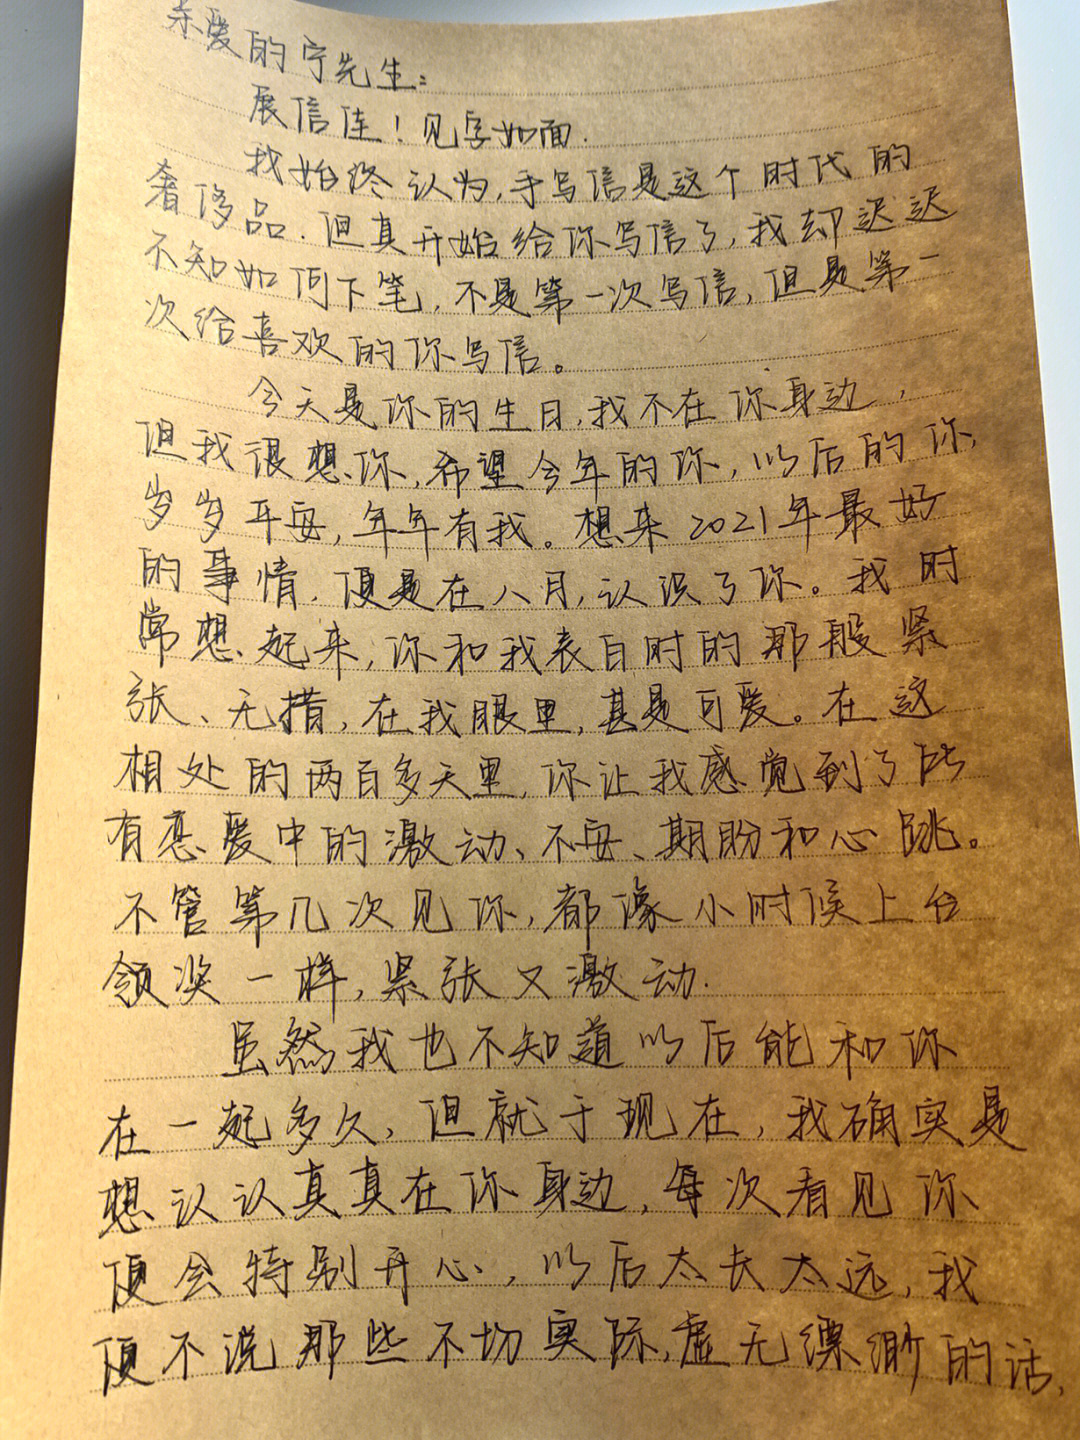 亲爱的宁先生:
展信佳!见字如面.
我始终认为,手写信是这个时代的
奢侈品.但真开始给你写信了,我却迟迟
不知如何下笔,不是第一次写信,但是第一
次给喜欢的你写信。
今天是你的生日,我不在你身边,
但我很想你,希望今年的你,以后的你,
岁岁平安,年年有我。想来2021年最好
的事情,便是在八月,认识了你。我时
常想起来,你和我表白时的那般紧
张、无措,在我眼里,甚是可爱。在这
相处的两百多天里,你让我感觉到了所
有恋爱中的激动、不安、期盼和心跳。
不管第几次见你,都像小时候上台
领奖一样,紧张又激动.
虽然我也不知道以后能和你
在一起多久,但就于现在,我确实是
想认认真真在你身边,每次看见你
便会特别开心,以后太长太远,我
便不说那些不切实际,虚无缥缈的话,